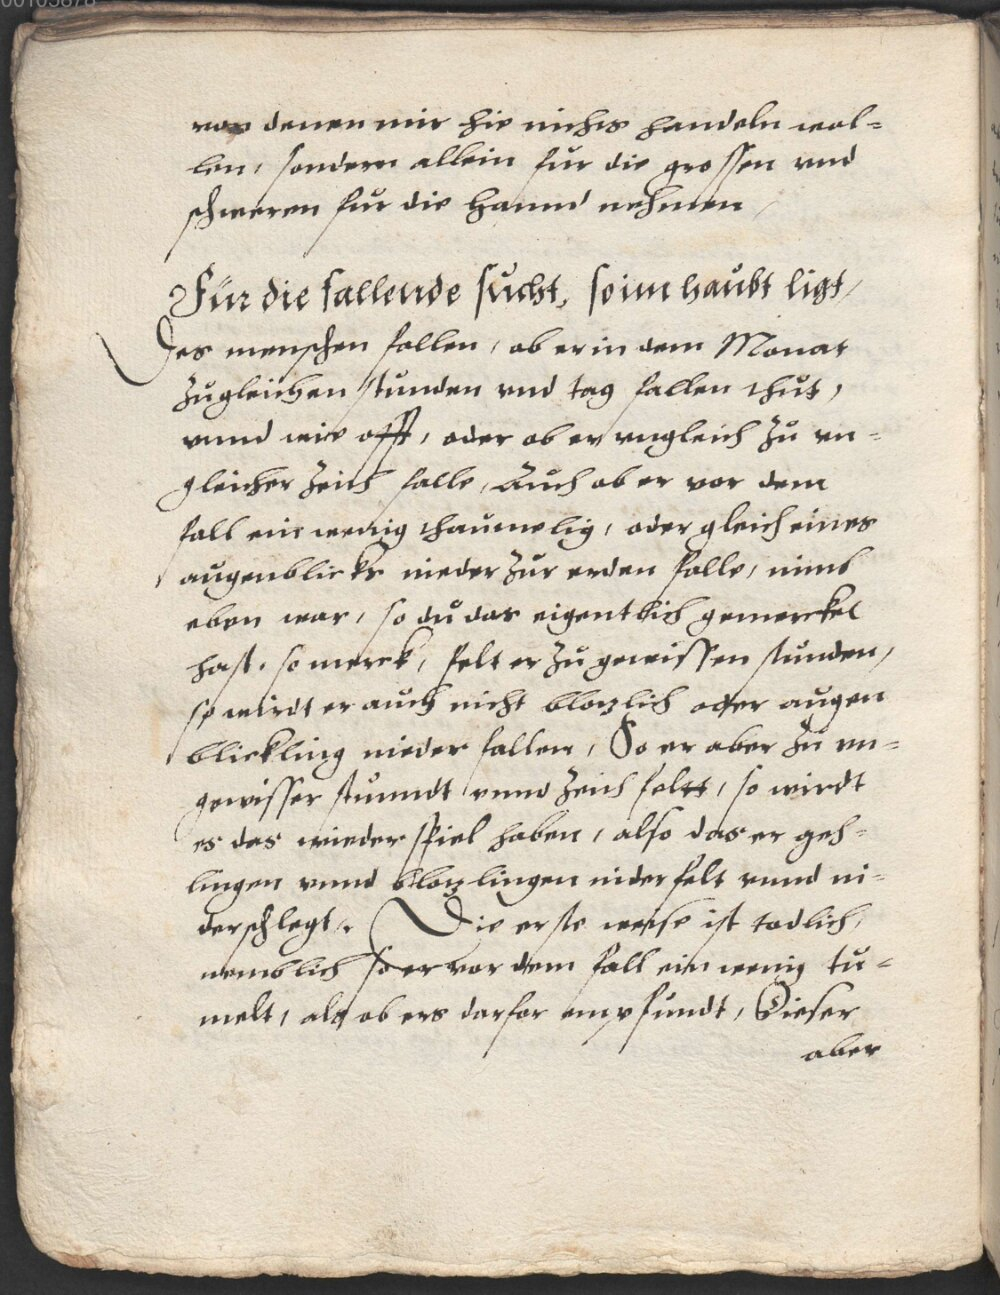 von denen mir hie nichts handeln wol-
len, sondern allein fur die grossen vnd
schweren fur die Hannd nehmen,
Für die fallende sucht, so im haubt ligt,
Des menschen fallen, ob er in dem Monat
zu gleichen stunden vnd tag fallen thut,
vnnd wie offt, oder ob er vngleich zu vn-
gleicher Zeith falle, Auch ob er vor dem
fall ein wenig thaumelig, oder gleich eines
augenblicks nieder zur erden falle, nimb
eben war, so du das eigentlich gemercket
hast, so merck, felt er zu gewissen stunden,
so wirdt er auch nicht blotzlich oder augen
blickling nieder fallen, So er aber zu vn-
gewisser stunndt vnnd Zeith feltt, so wirdt
es das wieder spiel haben, also das er geh-
lingen vnnd blotzlingen nider felt vnnd ni-
derschlegt, Die erste weise ist todlich,
nemblich so er vor dem fall ein wenig tu-
melt, als ob ers darfor empfundt, Dieser
aber